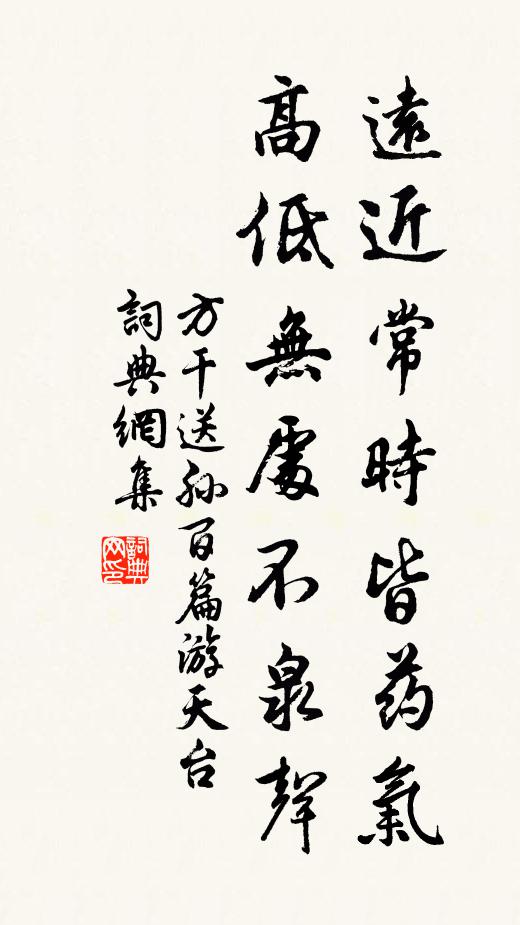 遠近常時皆药氣
高低無處不泉聲
方干送孙百篇游天台
詞典網集
詞典網印